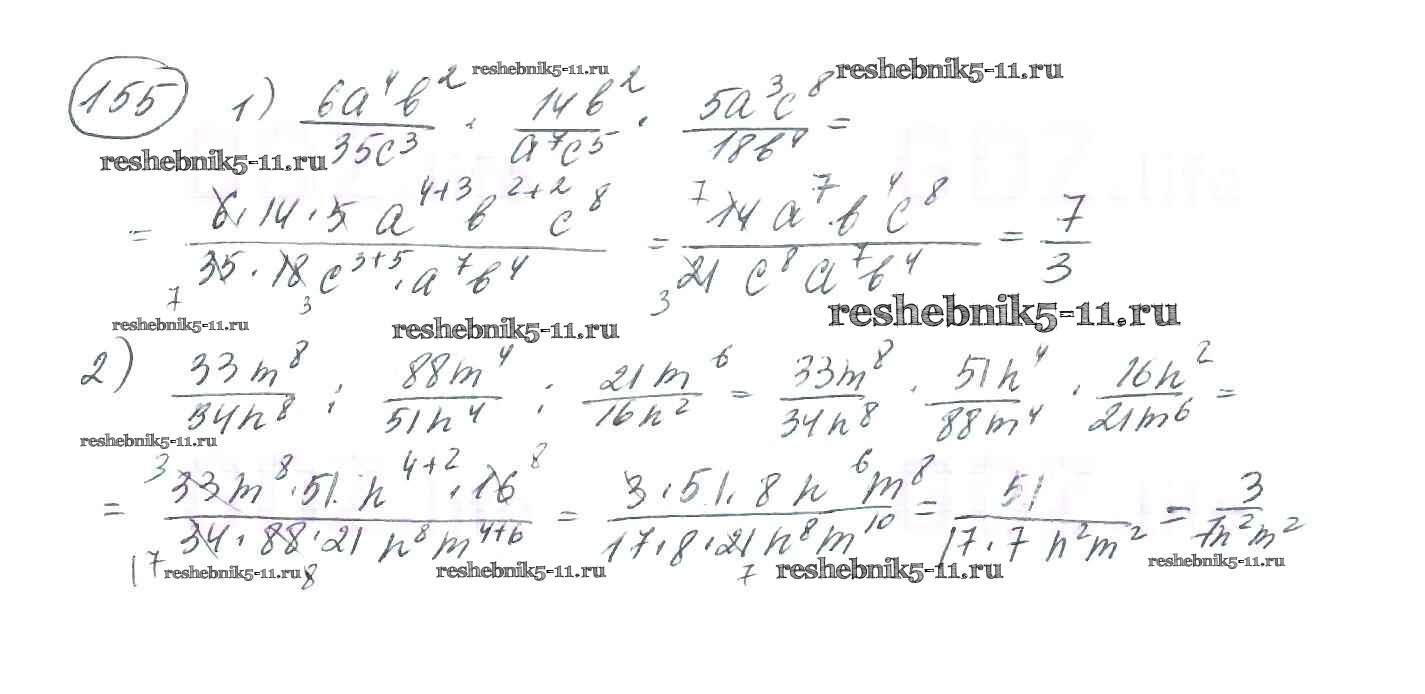 reshebnik5-11.ru
reshebnik5-11.ru
155 1) 6a⁴b²/35c³ · 14b²/a⁷c⁵ · 5a³c⁸/18b⁴ =
reshebnik5-11.ru
= 6·14·5 a⁴⁺³ b²⁺² c⁸ / 35·18 c³⁺⁵ · a⁷b⁴ = 14 a⁷ · b⁴ c⁸ / 21 c⁸ a⁷ b⁴ = 7/3
7 3 7 3
reshebnik5-11.ru reshebnik5-11.ru reshebnik5-11.ru
2) 33m⁸/34n⁸ : 88m⁴/51n⁴ : 21m⁶/16n² = 33m⁸/34n⁸ · 51n⁴/88m⁴ · 16n²/21m⁶ =
reshebnik5-11.ru
= 33m⁸·51·n⁴⁺²·16 / 34·88·21 n⁸m⁴⁺⁶ = 3·51·8 n⁶m⁸ / 17·8·21n⁸m¹⁰ = 51 / 17·7 n²m² = 3/7n²m²
3 8 17 8 7
reshebnik5-11.ru reshebnik5-11.ru reshebnik5-11.ru reshebnik5-11.ru